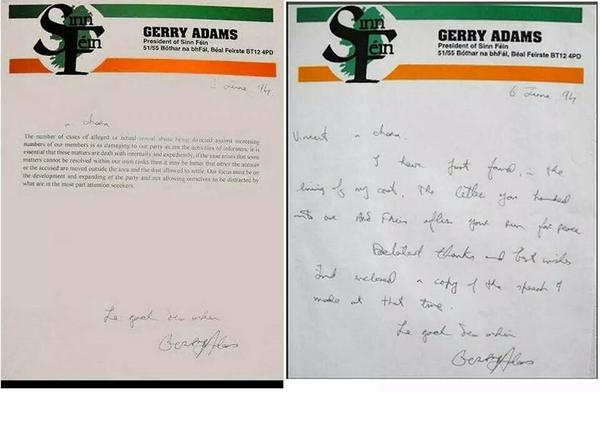 Sinn
Féin
GERRY ADAMS
President of Sinn Féin
51/55 Bóthar na bhFál, Béal Feirste BT12 4PD
June 94
a chara
The number of cases of alleged or actual sexual abuse being directed against increasing
numbers of our members is as damaging to our party as are the activities of informers, it is
essential that these matters are dealt with internally and expediently, if the case arises that some
matters cannot be resolved within our own ranks then it may be better that either the accuser
or the accused are moved outside the area and the dust allowed to settle. Our focus must be on
the development and expanding of the party and not allowing ourselves to be distracted by
what are in the most part attention seekers.
Le gach dea
Gerry Adams
Sinn
Féin
GERRY ADAMS
President of Sinn Féin
51/55 Bóthar na bhFál, Béal Feirste BT12 4PD
6 June 94
Vincent a chara.
I have just found, in the
lining of my coat, the letter you handed
into me after your run for peace
Belated thanks and best wishes
Find enclosed a copy of the speech I
made at that time.
Le gach dea
Gerry Adams